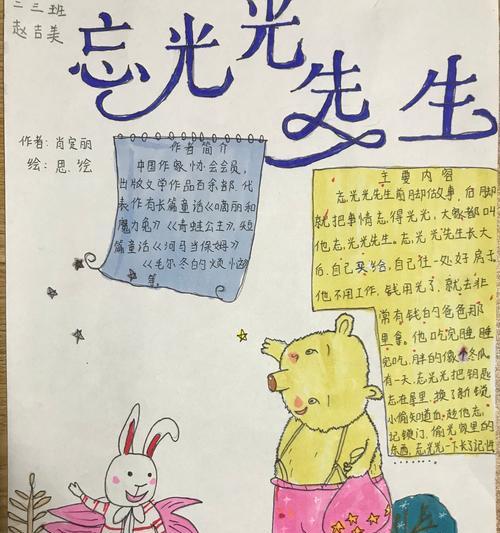 二三班
赵吉美
忘光光先生
作者:肖定丽
绘:思绘
作者简介
中国作家协会会员,
出版文学作品百余部,代
表作有长篇童话《嘀丽和
魔力兔》《青蛙公主》,短
篇童话《河马当保姆》
《毛尔冬的烦恼》
等
主要内容
忘光光先生前脚做事,后脚
就把事情忘得光光,大家都叫
他忘光光先生。忘光光先生长大
后,自己买给,自己住一处好房子
他不用工作,钱用光了,就去非
常有钱的爸爸那
里拿。他吃完睡睡
完吃,胖的像个冬瓜
有一天,忘光光把钥匙
忘在屋里,换了新锁
小偷知道后,趁他忘
记锁门,偷光家里的
东西,忘光光一下长了记性